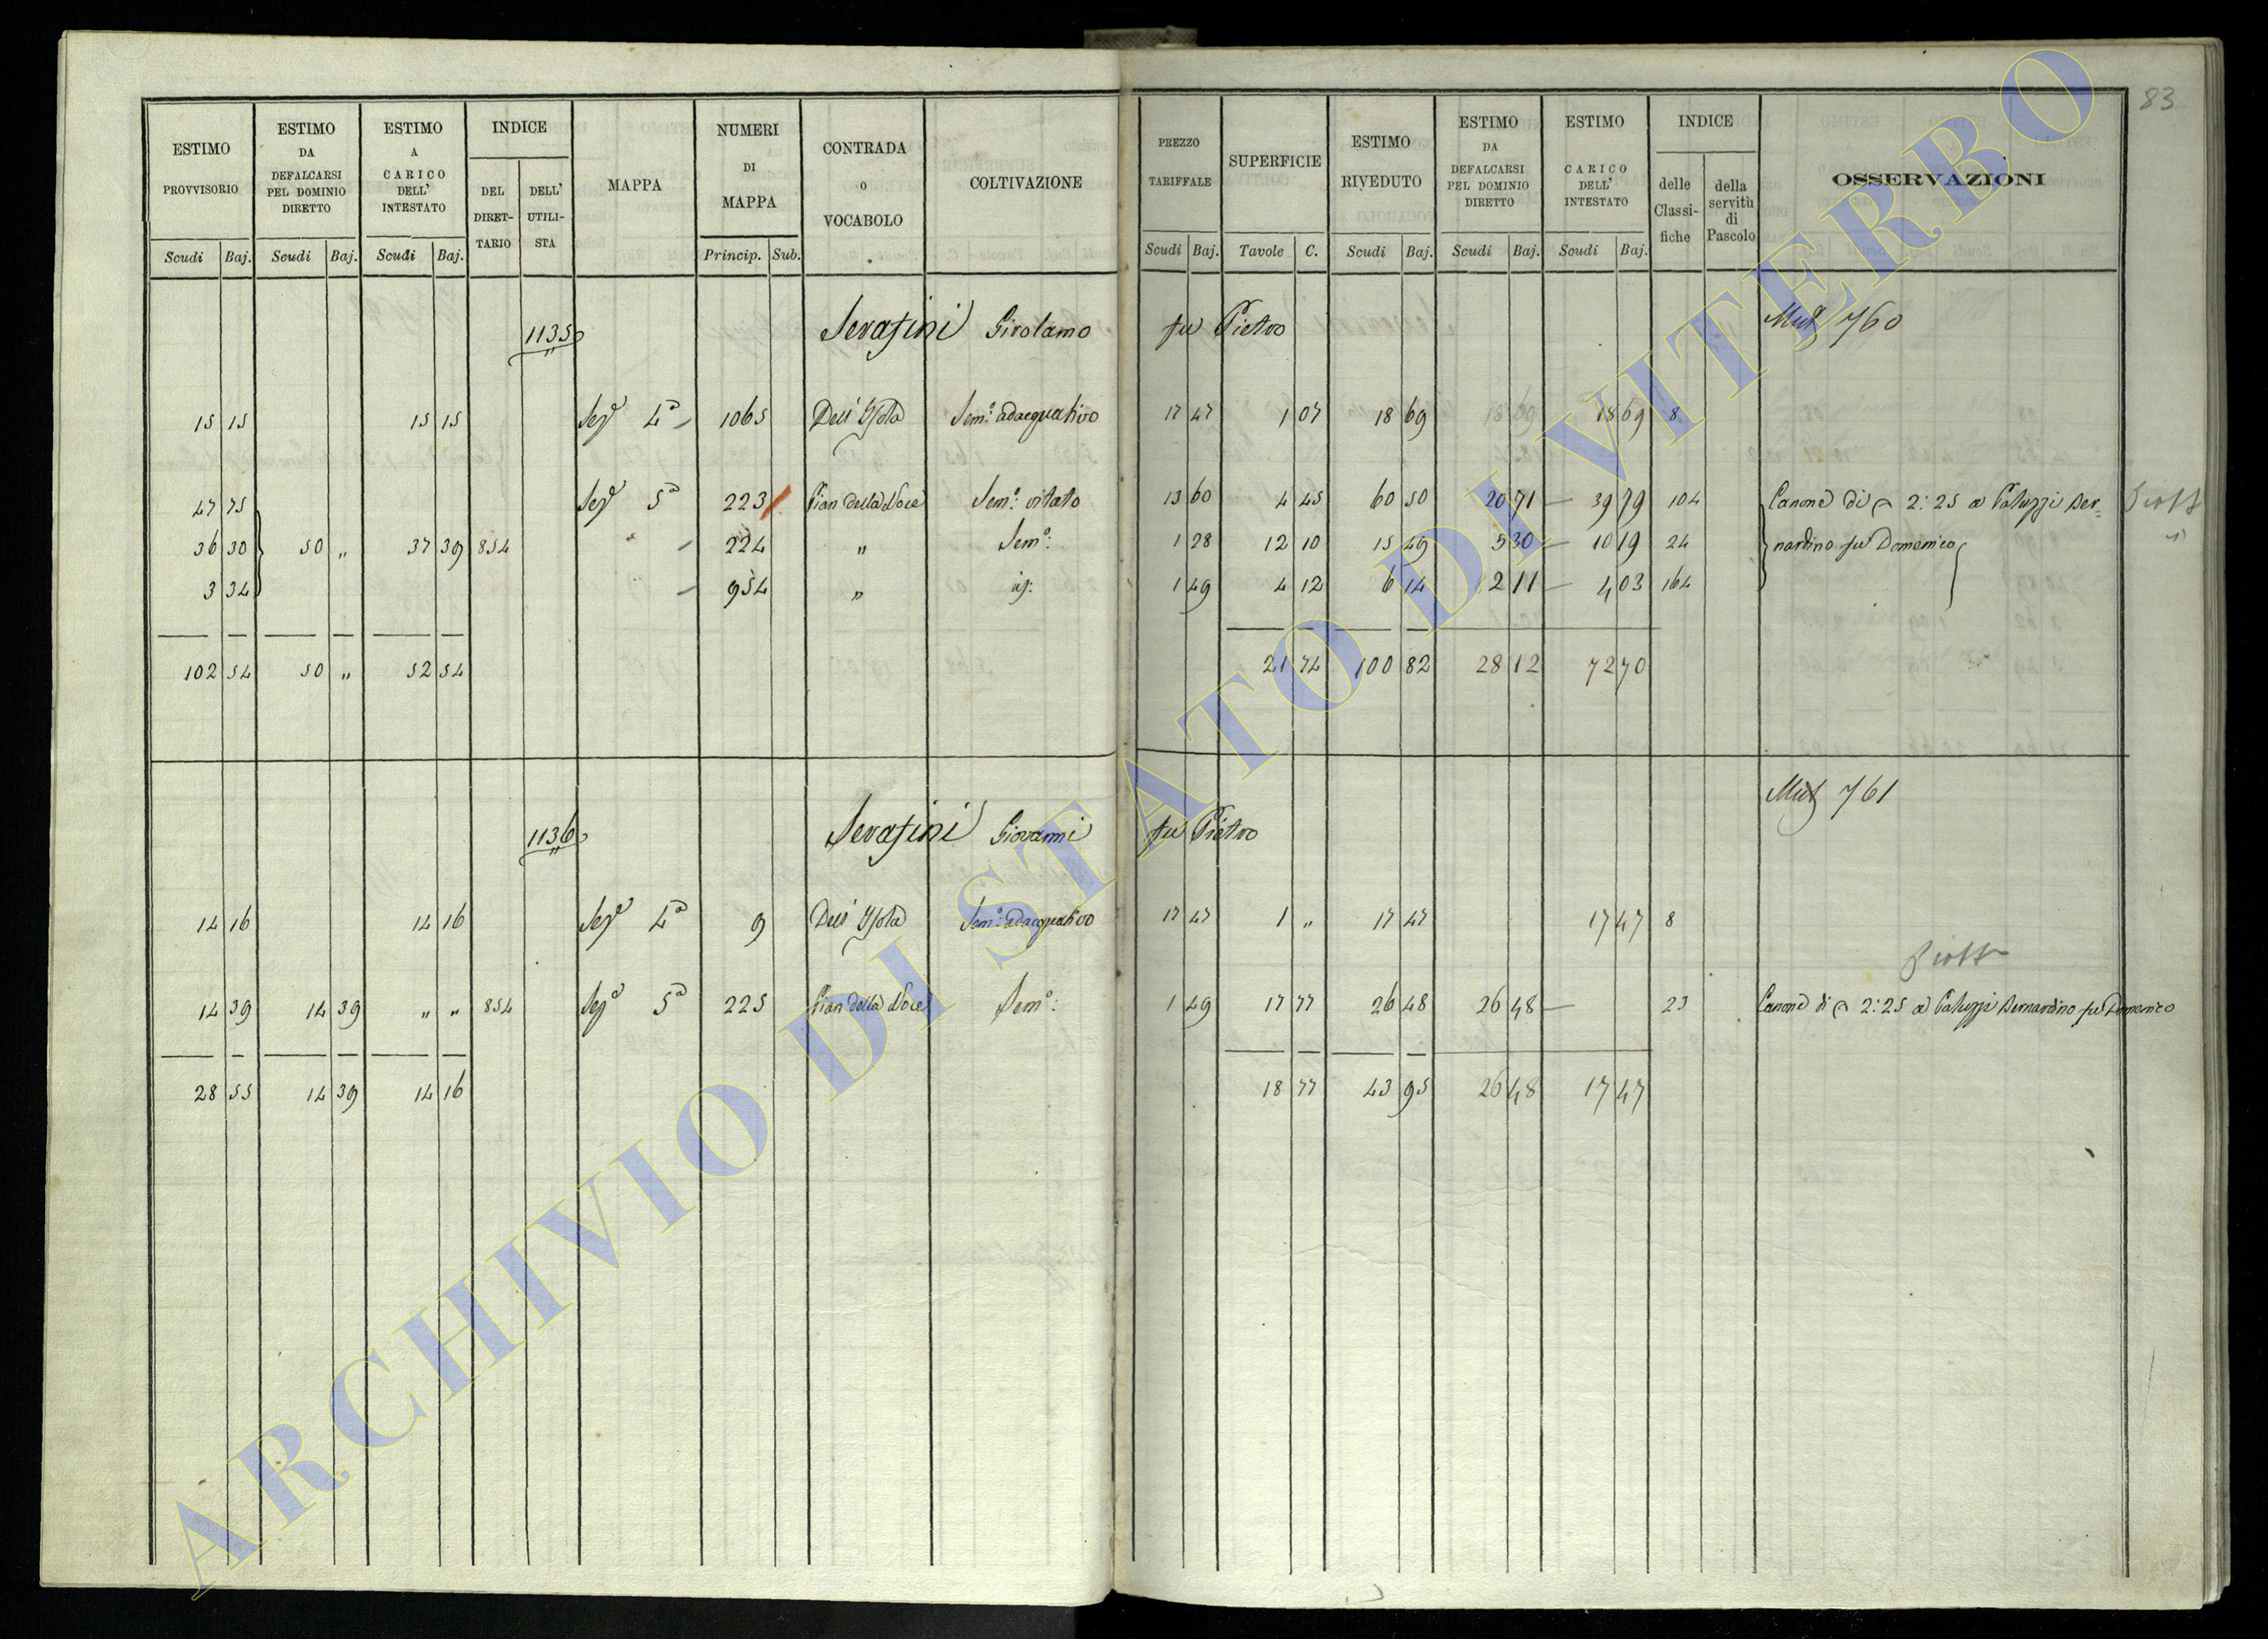 83
ESTIMO PROVVISORIO | ESTIMO DA DEFALCARSI PEL DOMINIO DIRETTO | ESTIMO A CARICO DELL' INTESTATO | INDICE DEL DIRET-TARIO | DELL' UTILI-STA | MAPPA | NUMERI DI MAPPA | CONTRADA O VOCABOLO | COLTIVAZIONE | PREZZO TARIFFALE | SUPERFICIE | ESTIMO RIVEDUTO | ESTIMO DA DEFALCARSI PEL DOMINIO DIRETTO | ESTIMO CARICO DELL' INTESTATO | INDICE delle Classi-fiche | della servitù di Pascolo | OSSERVAZIONI
Scudi Baj. | Scudi Baj. | Scudi Baj. | Princip. Sub. | Scudi Baj. | Tavole C. | Scudi Baj. | Scudi Baj. | Scudi Baj.
1135 Serafini Girolamo fu Pietro Mut 760
15 15 | 15 15 | Sez 4a | 1065 | Dell' Isola | Sem: adacquativo | 17 47 | 1 07 | 18 69 | 18 69 | 18 69 | 8
47 75 | Sez 5a | 223 | Pian della Noce | Sem: vitato | 13 60 | 4 45 | 60 50 | 20 71 | 39 79 | 104 | Canone di 2:25 a Paluzzi Ber=
36 30 | 50 " | 37 39 | 854 | 224 | " | Sem: | 1 28 | 12 10 | 15 49 | 5 30 | 10 19 | 24 | nardino fu Domenico
3 34 | 954 | " | id: | 1 49 | 4 12 | 6 14 | 2 11 | 4 03 | 164
102 54 | 50 " | 52 54 | 21 74 | 100 82 | 28 12 | 72 70
Mut 761
1136 Serafini Giovanni fu Pietro
14 16 | 14 16 | Sez 4a | 9 | Dell' Isola | Sem: adacquativo | 17 47 | 1 " | 17 47 | 17 47 | 8
14 39 | 14 39 | " " | 854 | Sez 5a | 225 | Pian della Noce | Sem: | 1 49 | 17 77 | 26 48 | 26 48 | 23 | Canone di 2:25 a Paluzzi Bernardino fu Domenico
28 55 | 14 39 | 14 16 | 18 77 | 43 95 | 26 48 | 17 47
ARCHIVIO DI STATO DI VITERBO